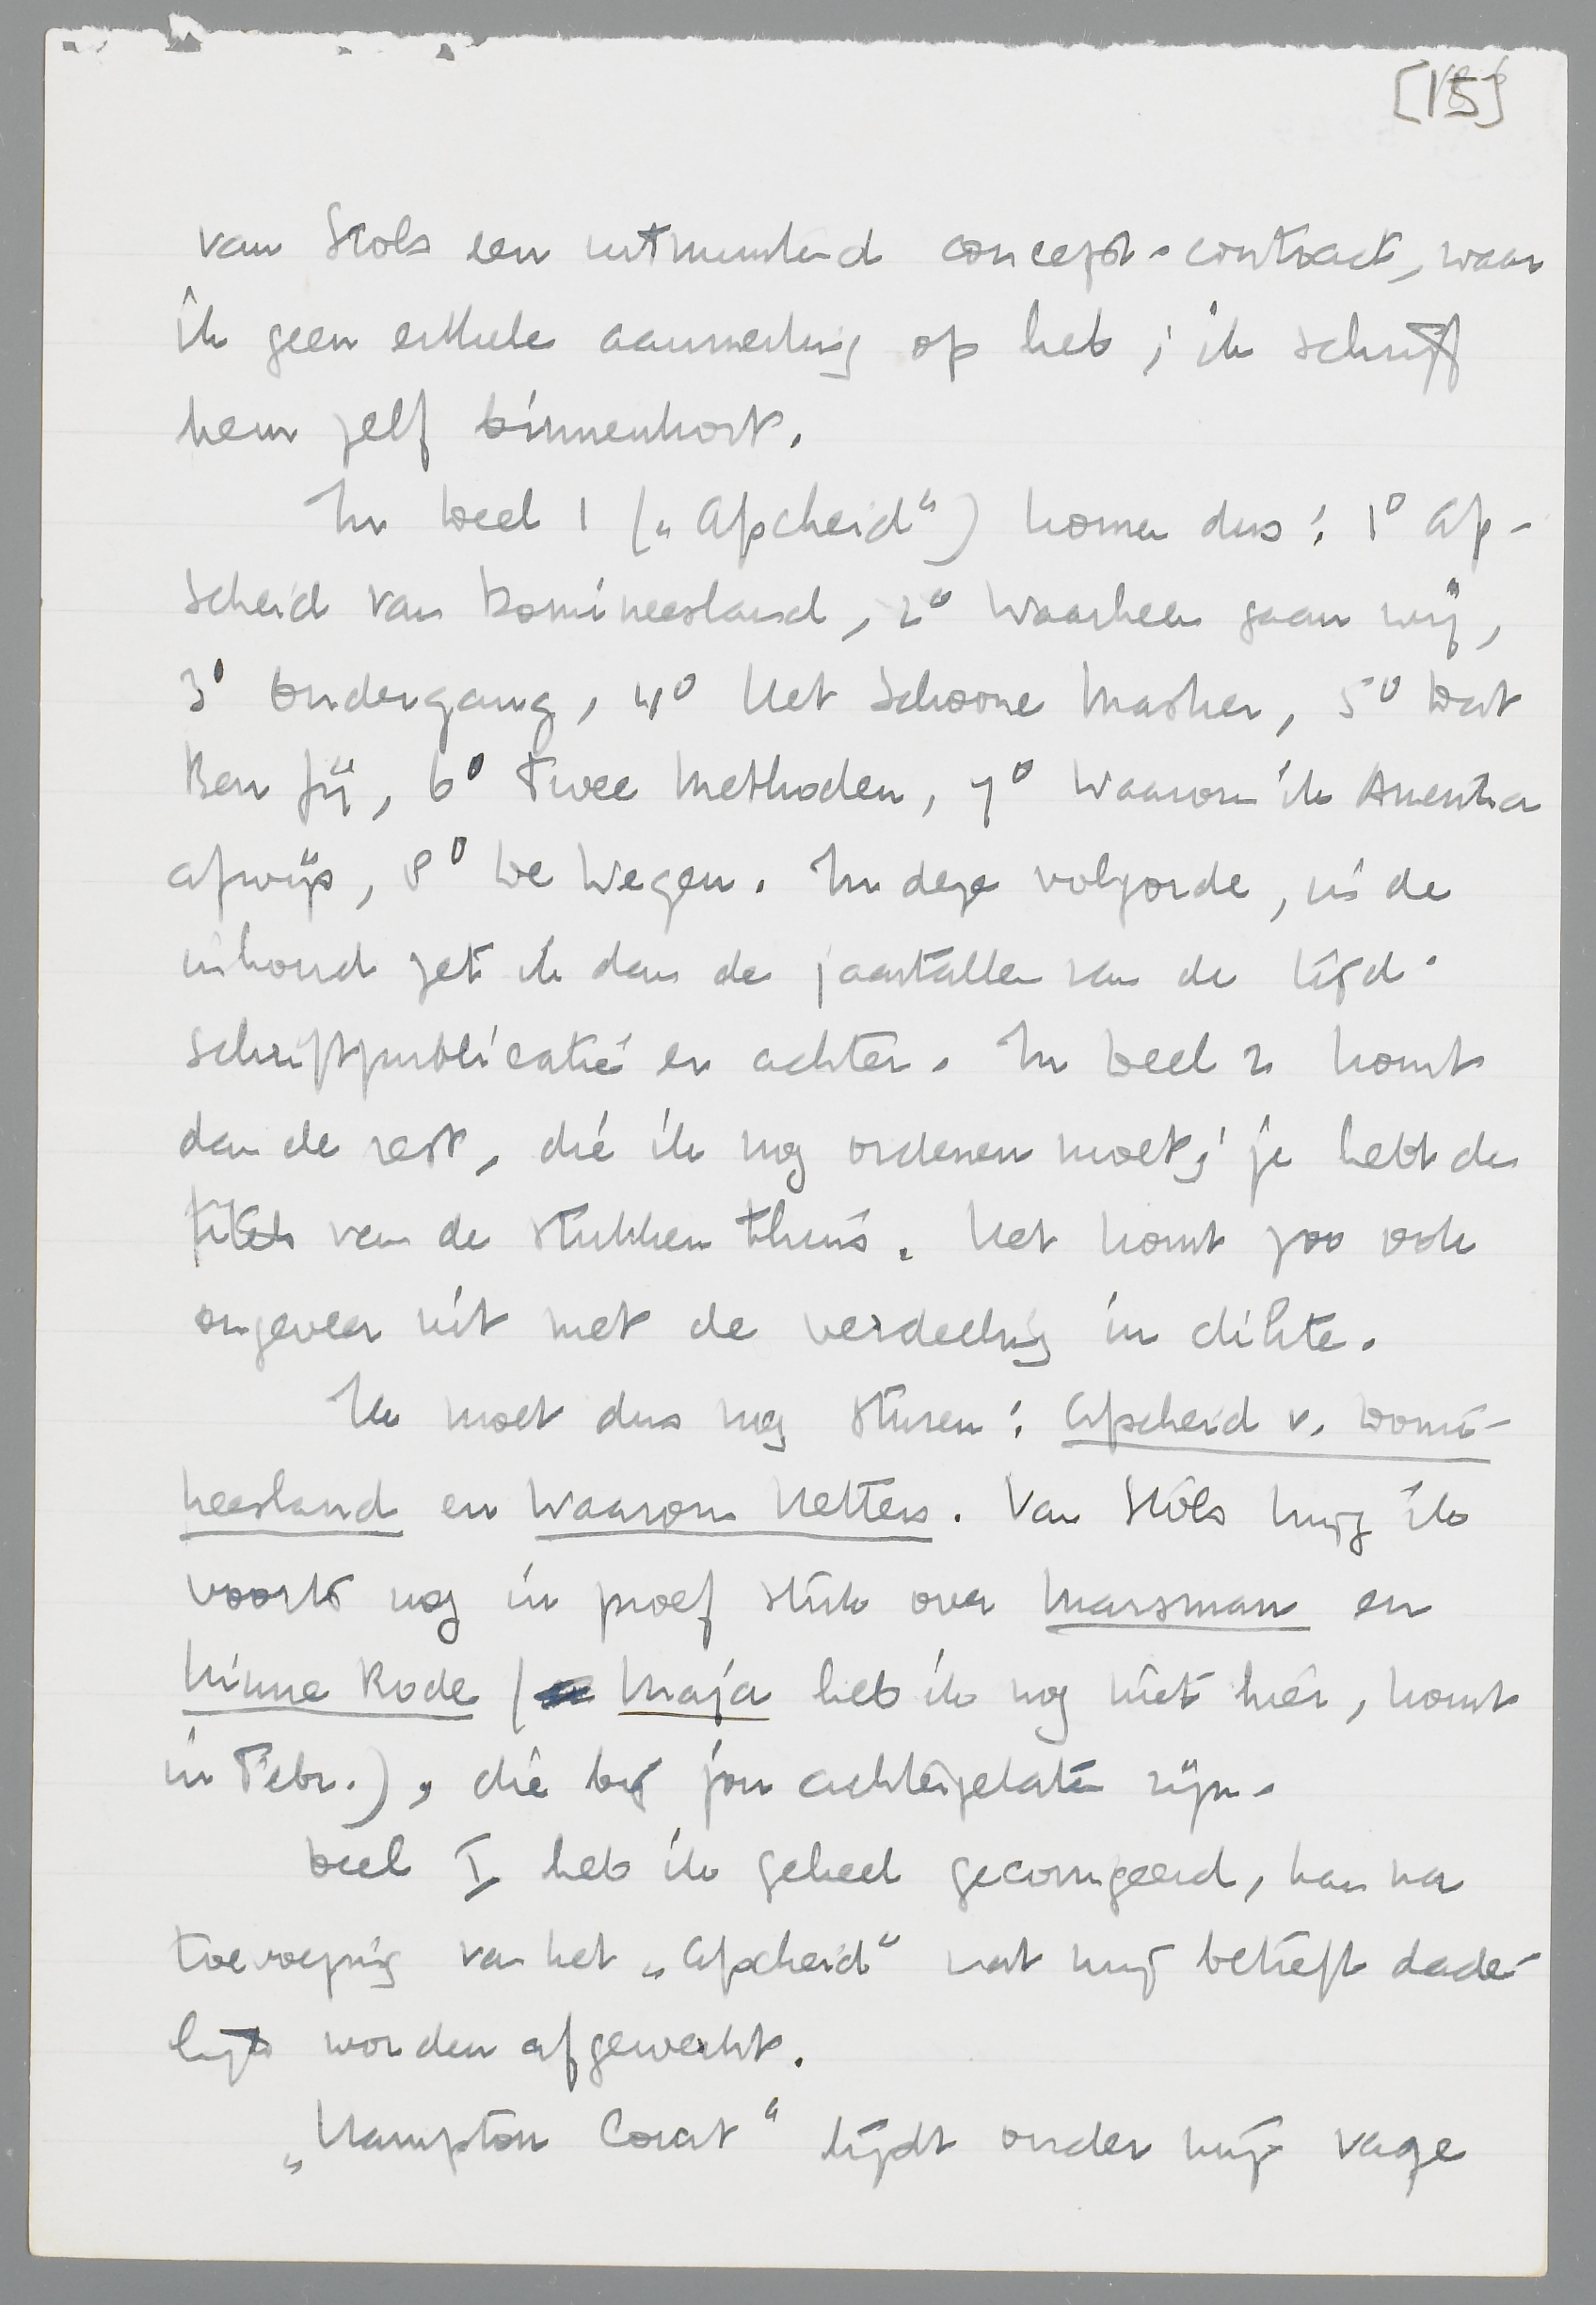 [15]
van Stols een uitmuntend concept-contract, waar
ik geen enkele aanmerking op heb; ik schrijf
hem zelf binnenkort.
In Deel 1 („Afscheid") komen dus: 1° Af-
scheid van Domineesland, 2° Waarheen gaan wij,
3° Ondergang, 4° Het Schoone Masker, 5° Wat
Ben Jij, 6° Twee Methoden, 7° Waarom ik Amerika
afwijs, 8° De Wegen. In deze volgorde, in de
inhoud zet ik dan de jaartallen van de tijd-
schriftpublicatie er achter. In Deel 2 komt
dan de rest, die ik nog ordenen moet; je hebt de
titels van de stukken thuis. Het komt zoo ook
ongeveer uit met de verdeeling in dikte.
Ik moet dus nog sturen: Afscheid v. Domi-
neesland en Waarom Ketters. Van Stols krijg ik
voorts nog in proef stuk over Marsman en
Minne Rode ( Maja heb ik nog niet hier, komt
in Febr.), die bij jou achtergelaten zijn.
Deel I heb ik geheel gecorrigeerd, kan na
toevoeging van het „Afscheid" wat mij betreft dade-
lijk worden afgewerkt.
„Hampton Court" lijdt onder mijn vage